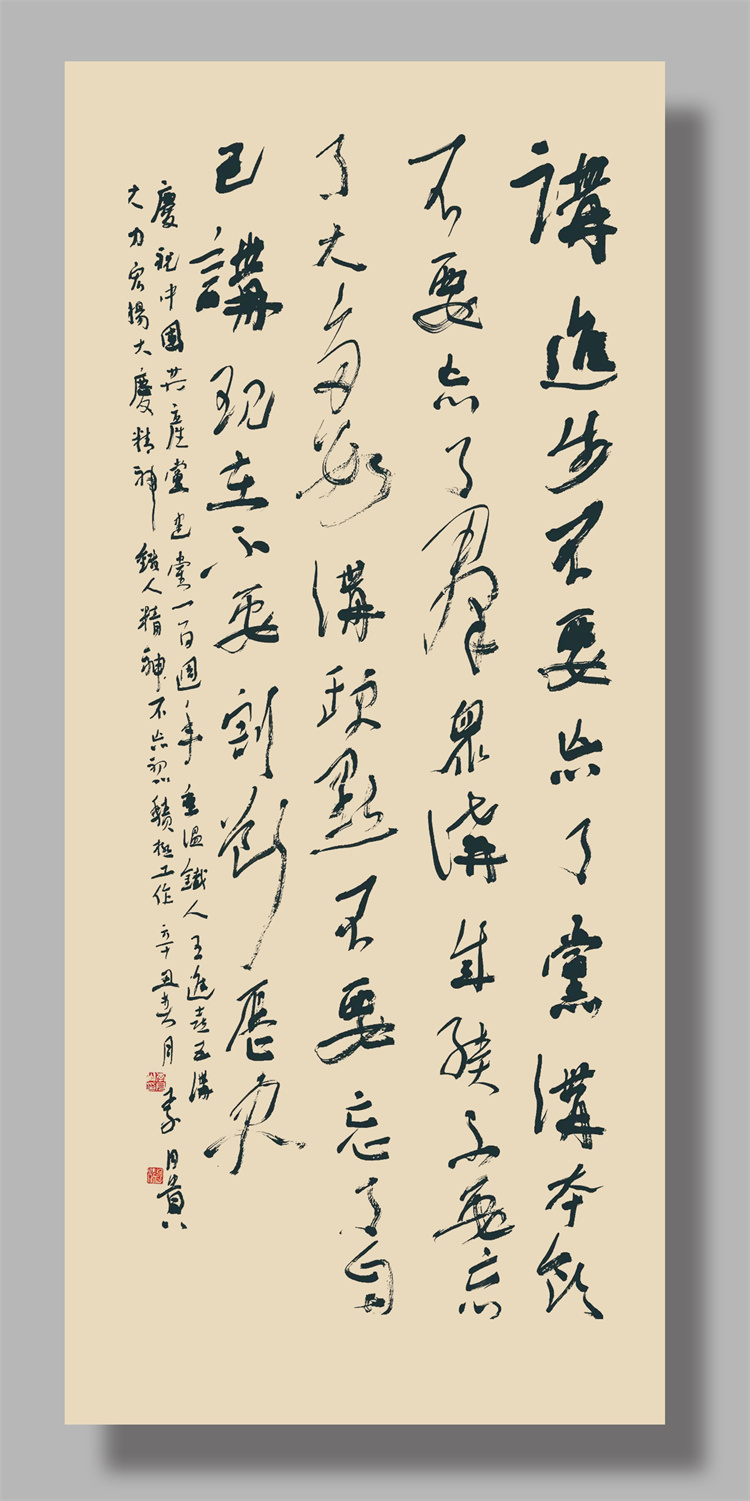 講進步不要忘了黨講本領
不要忘了羣眾講成績不要忘
了大多數講缺點不要忘了自
己講現在不要割斷歷史
慶祝中國共產黨建黨一百週年重温鐵人王進喜五講
大力宏揚大慶精神鐵人精神不忘初心積極工作辛丑春月李月貴